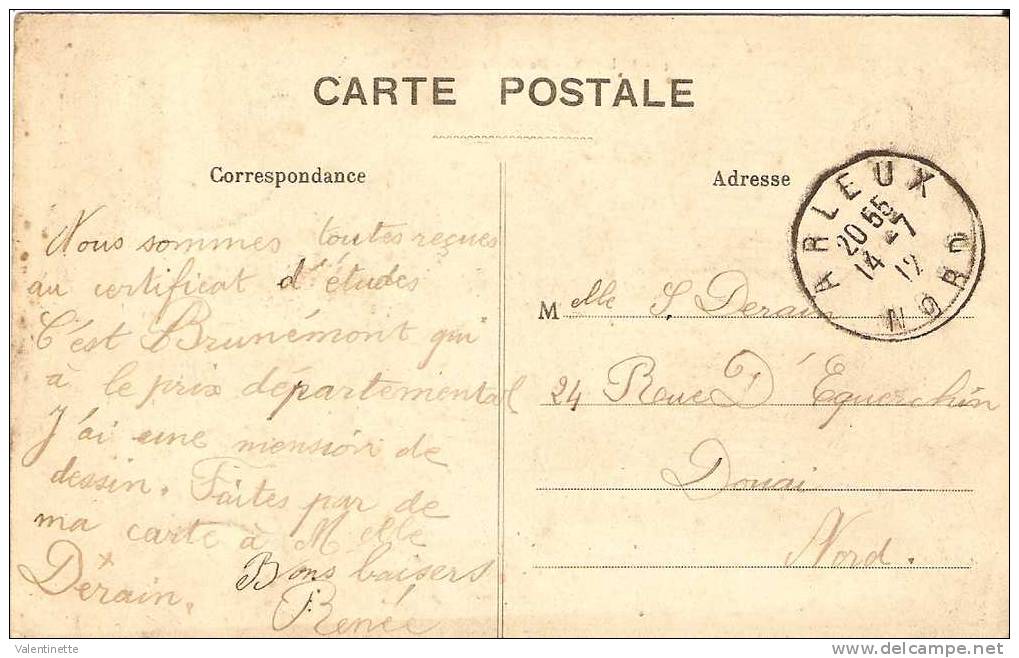 CARTE POSTALE
Correspondance
Nous sommes toutes reçues
au certificat d'études
C'est Brunémont qui
à le prix départemental
J'ai une mension de
dessin. Faites par de
ma carte à Melle
Derain.
Bons baisers
Renée
Adresse
ARLEUX
20 55
14 - 7
12
NORD
Melle S. Derain
24 Rue D'Equerchin
Douai
Nord.
Valentinette
delcampe.net